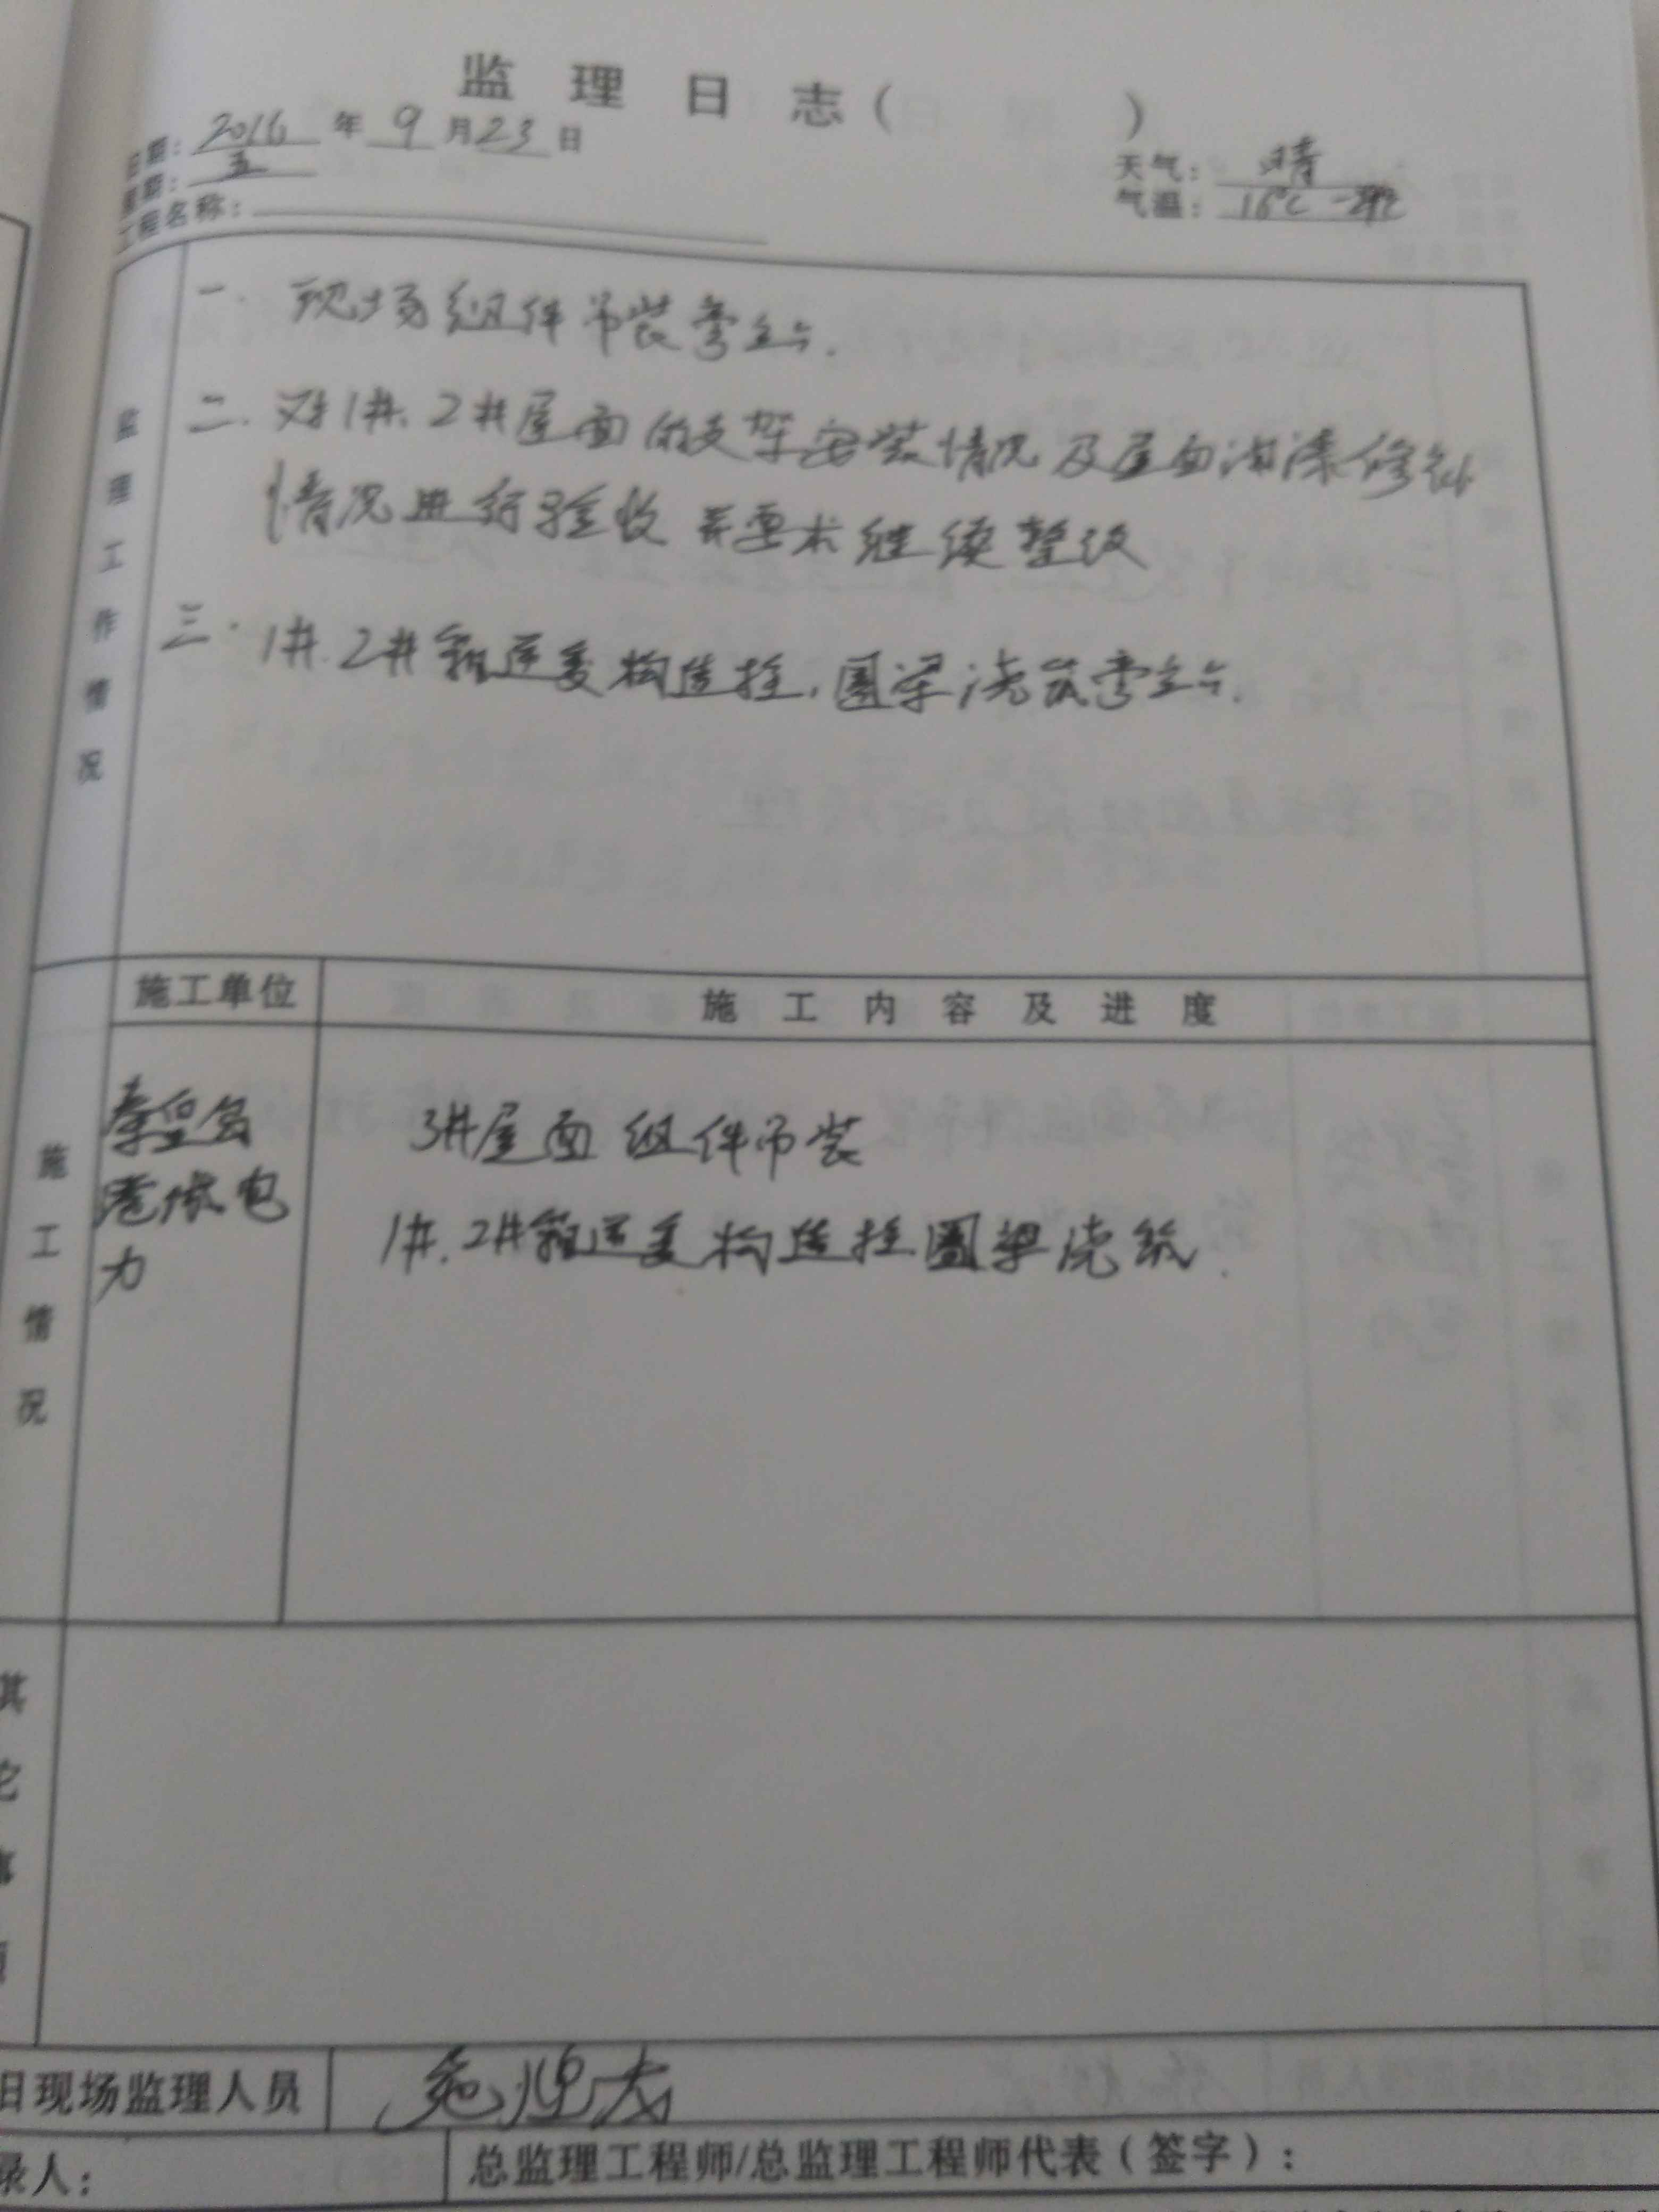 监理日志（ ）
日期：2016年9月23日
星期：五
工程名称：
天气：晴
气温：16℃-29℃
监理工作情况
一、现场组件吊装旁站.
二、对1#、2#屋面的支架安装情况及屋面油漆修补
情况进行验收并要求继续整改
三、1#、2#箱逆变构造柱、圈梁浇筑旁站.
施工单位 施工内容及进度
施工情况
秦皇岛
港保电
力
3#屋面组件吊装
1#、2#箱逆变构造柱圈梁浇筑.
其它事项
日现场监理人员
录人：
总监理工程师/总监理工程师代表（签字）：